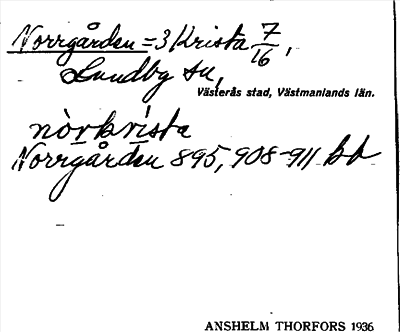 Norrgården = 3 Krista 7/16,
Lundby sn,
Västerås stad, Västmanlands län.
nòrkrìsta
Norrgården 895, 908-911 bb
ANSHELM THORFORS 1936